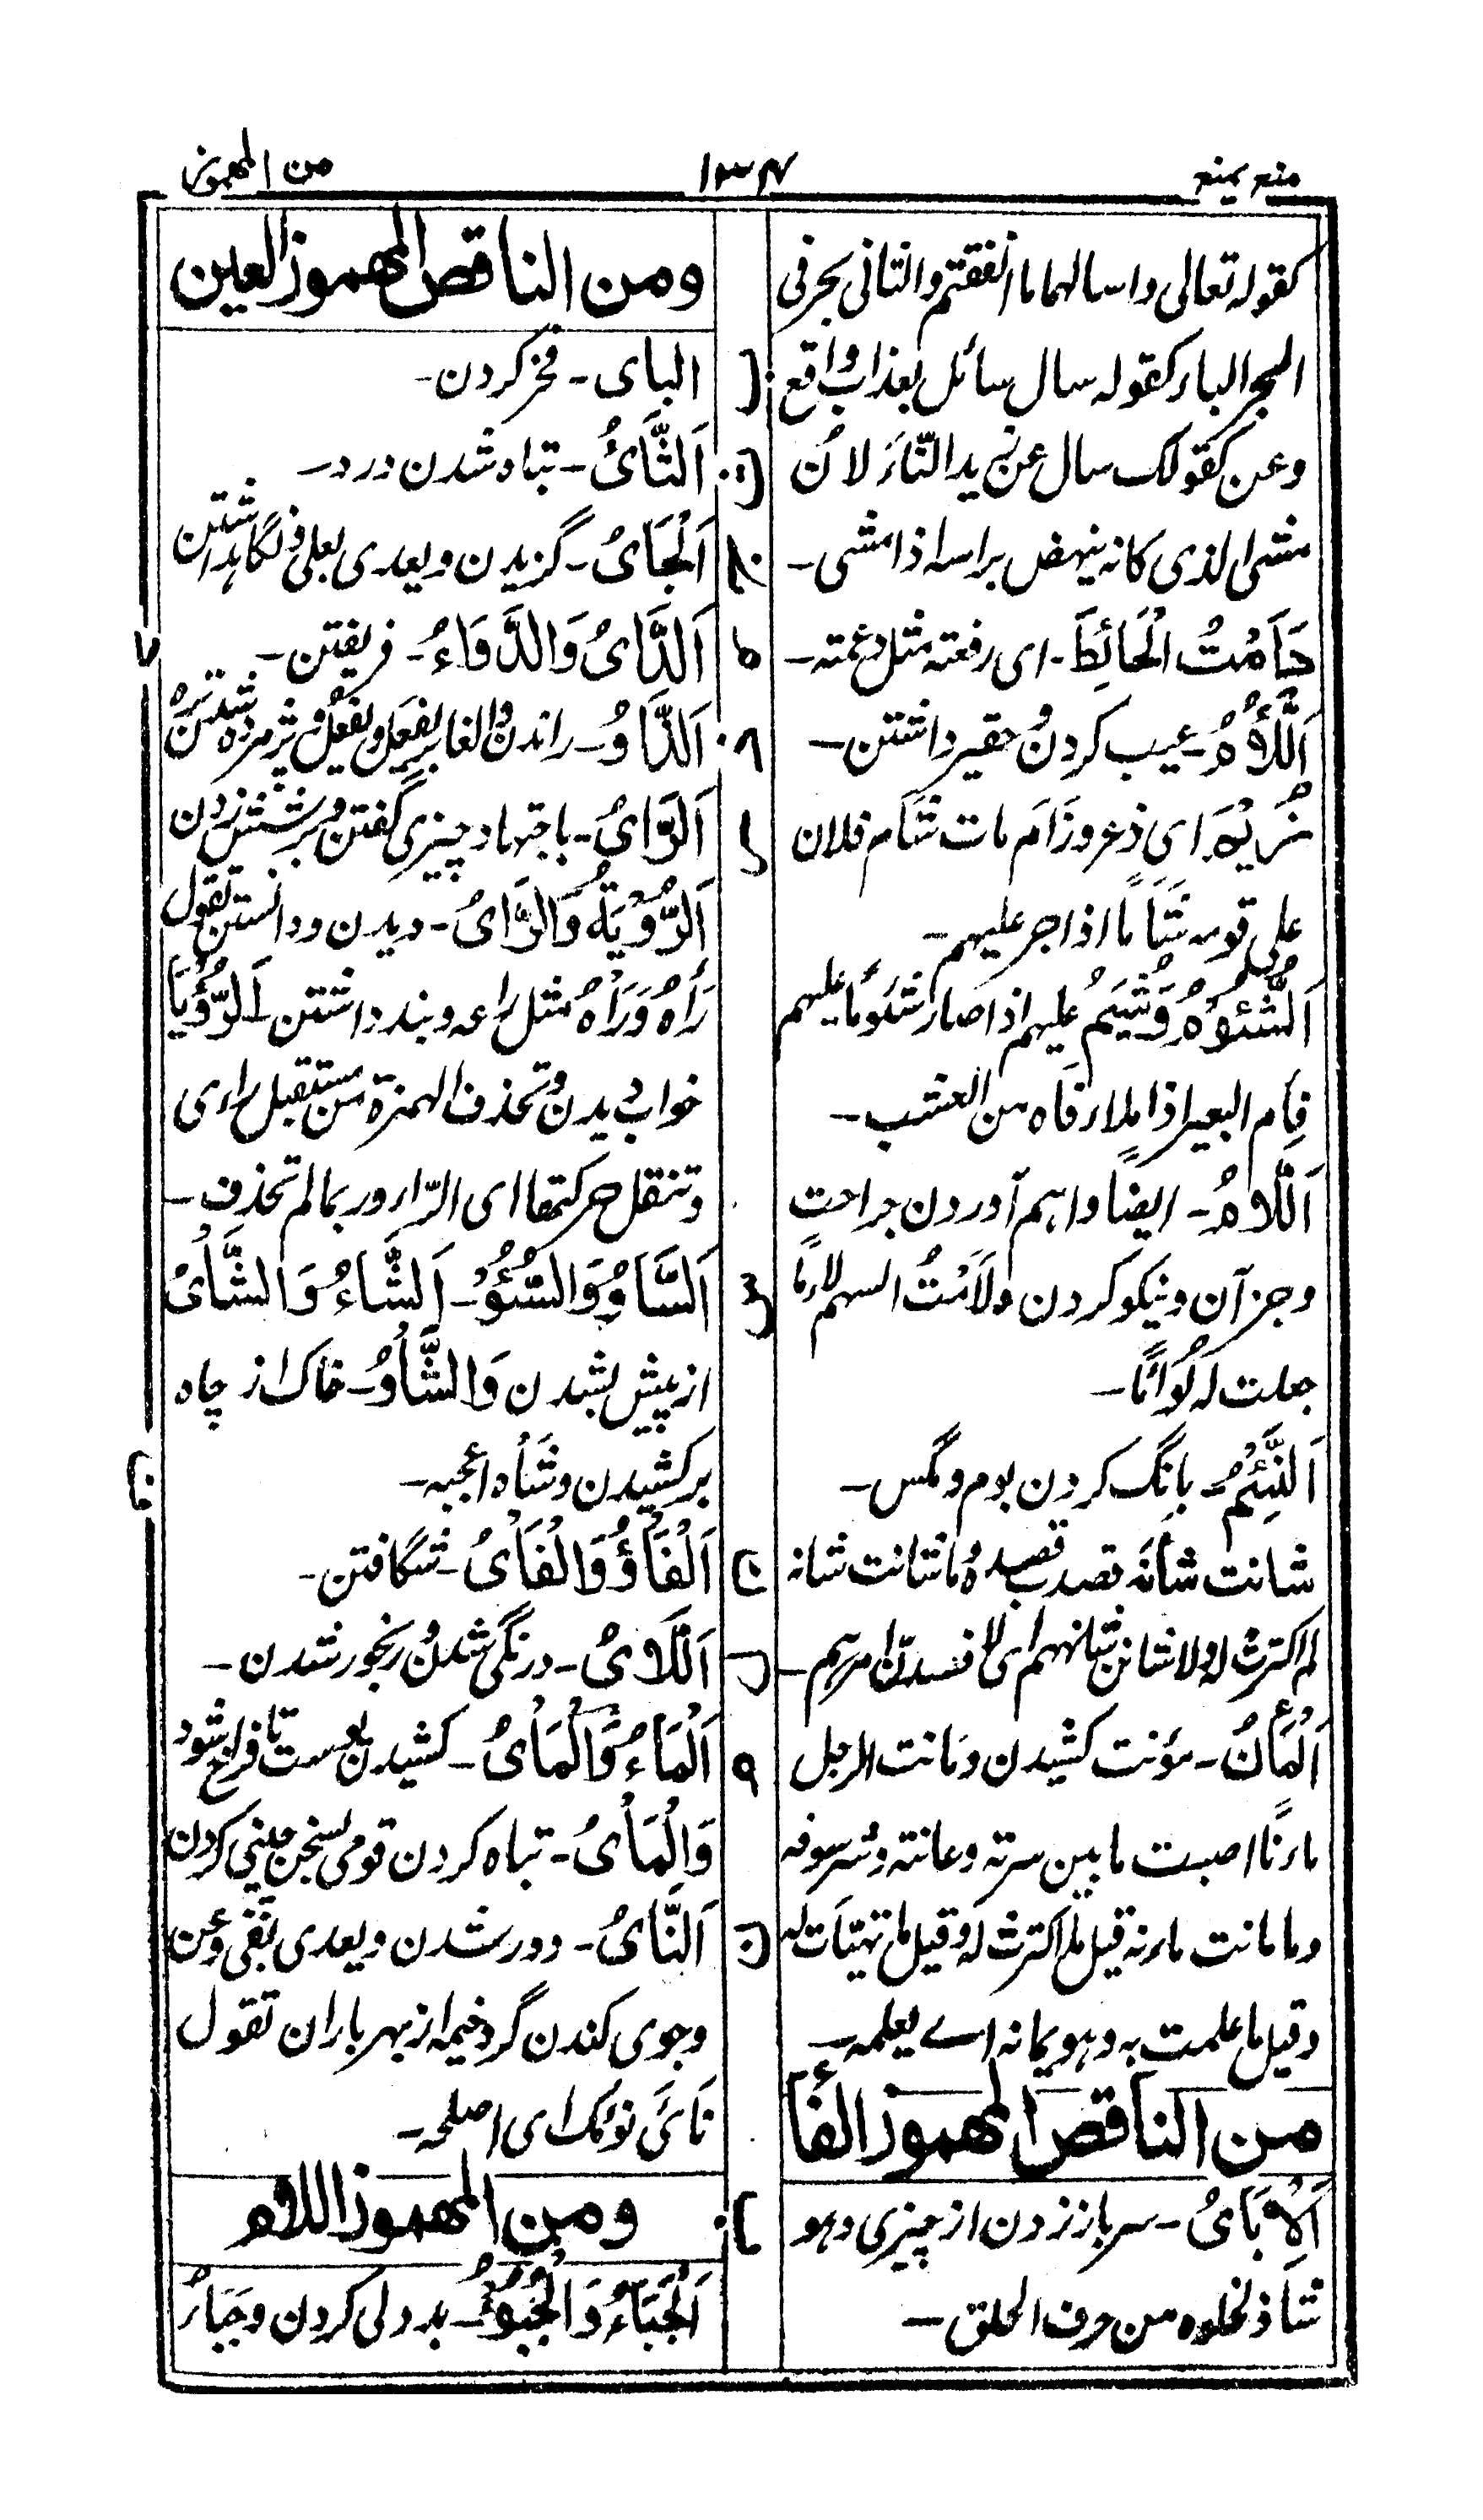 منع یمنع
۱۳۴
من المهموز
كقوله تعالى واسالهما ما انفقتم والثانى بحرفى
الجر البار كقوله سال سائل بعذاب واقع
وعن كقولك سال عن زيد النَّارَ لانُ
مشى الذى كانه ينهض براسه اذا مشى ـ
دَأَمْتُ الْحَائِطَ ـ اى رفعته مثل دعمته ـ
اَلذَّأْمُ ـ عيب كردن و حقير داشتن ـ
اى ذعر وزَأَمَ مات شأم فلان
على قومه شَأْمًا اذا جر عليهم ـ
عليهم اذا صار شئومًا عليهم
فأم البعير اذا ملا رفاه من العشب ـ
اَللَّأْمُ ـ ايضًا واهم آوردن جراحت
وجز آن ونيكو كردن ولَأَمْتُ السهم لأمًا
جعلت له لُؤَامًا ـ
اَلنَّئِيْمُ ـ بانگ كردن بوم ومگس ـ
شانت شأنَه قصدت قصده وما شانت شانه
لم اكترث له ولا شانن شانهم اى لافسدن امرهم ـ
اَلْمَأْنُ ـ مؤنت كشيدن ومَانت الرجل
مارنًا اصبت ما بين سرته وعانته وشرسوفه
وما مانت مارنه قيل ما اكترثت له وقيل ما تهيّات له
وقيل ما علمت به وهو يمانه اے يعلمه ـ
من الناقص المهموز الفأ
اَلْاِبَاىُ ـ سر باز زدن از چيزى وهو
شاذ لخلوه من حرف الحلق ـ
ومن الناقص المهموز العين
الباى ـ فخر كردن ـ
اَلثَّأىُ ـ تباه شدن درد ـ
اَلْجَاىُ ـ گزيدن ويعدى بعلى ونگاہداشتن
اَلدَّاىُ وَالدَّوَاءُ ـ فريفتن ـ
اَلذَّاوُ ـ راندن والغابر يفعل ويفعل وپژمرده شدن تره
اَلرَّاىُ ـ باجتهاد چيزى گفتن وبرشش زدن
اَلرُّؤْيَةُ وَالرَّاىُ ـ ديدن ودانستن تقول
رَأَهُ وَرَآهُ مثل راعه وپنداشتن ـ اَلرُّؤْيَا
خواب ديدن وتحذف الهمزة من مستقبل راى
وتنقل حركتها اى الرّار وربما لم تحذف ـ
اَلسَّاوُ وَالسُّئُوُّ ـ اَلشَّاءُ وَالشَّأىُ
از پيش بشدن وَالشَّأوُ ـ خاک از چاه
بركشيدن وشَأه اعجبه ـ
اَلْفَأوُ وَالْفَأىُ ـ شگافتن ـ
اَللَّاىُ ـ درنگى شدن ورنجور شدن ـ
اَلْمَاءُ وَالْمَاىُ ـ كشيدن پوست تا فراخ شود
وَالْمَأىُ ـ تباه كردن قومى بسخن چينى كردن
اَلنَّاىُ ـ دور شدن ويعدى بنفسه وعن
وجوى كندن گرد خيمه از بهر باران تقول
نَاىَ نؤيك اى اصلحه ـ
ومن المهموز اللام
اَلْجَبَاءُ وَالْجُبُوءُ ـ بددلى كردن وجَبَارُ